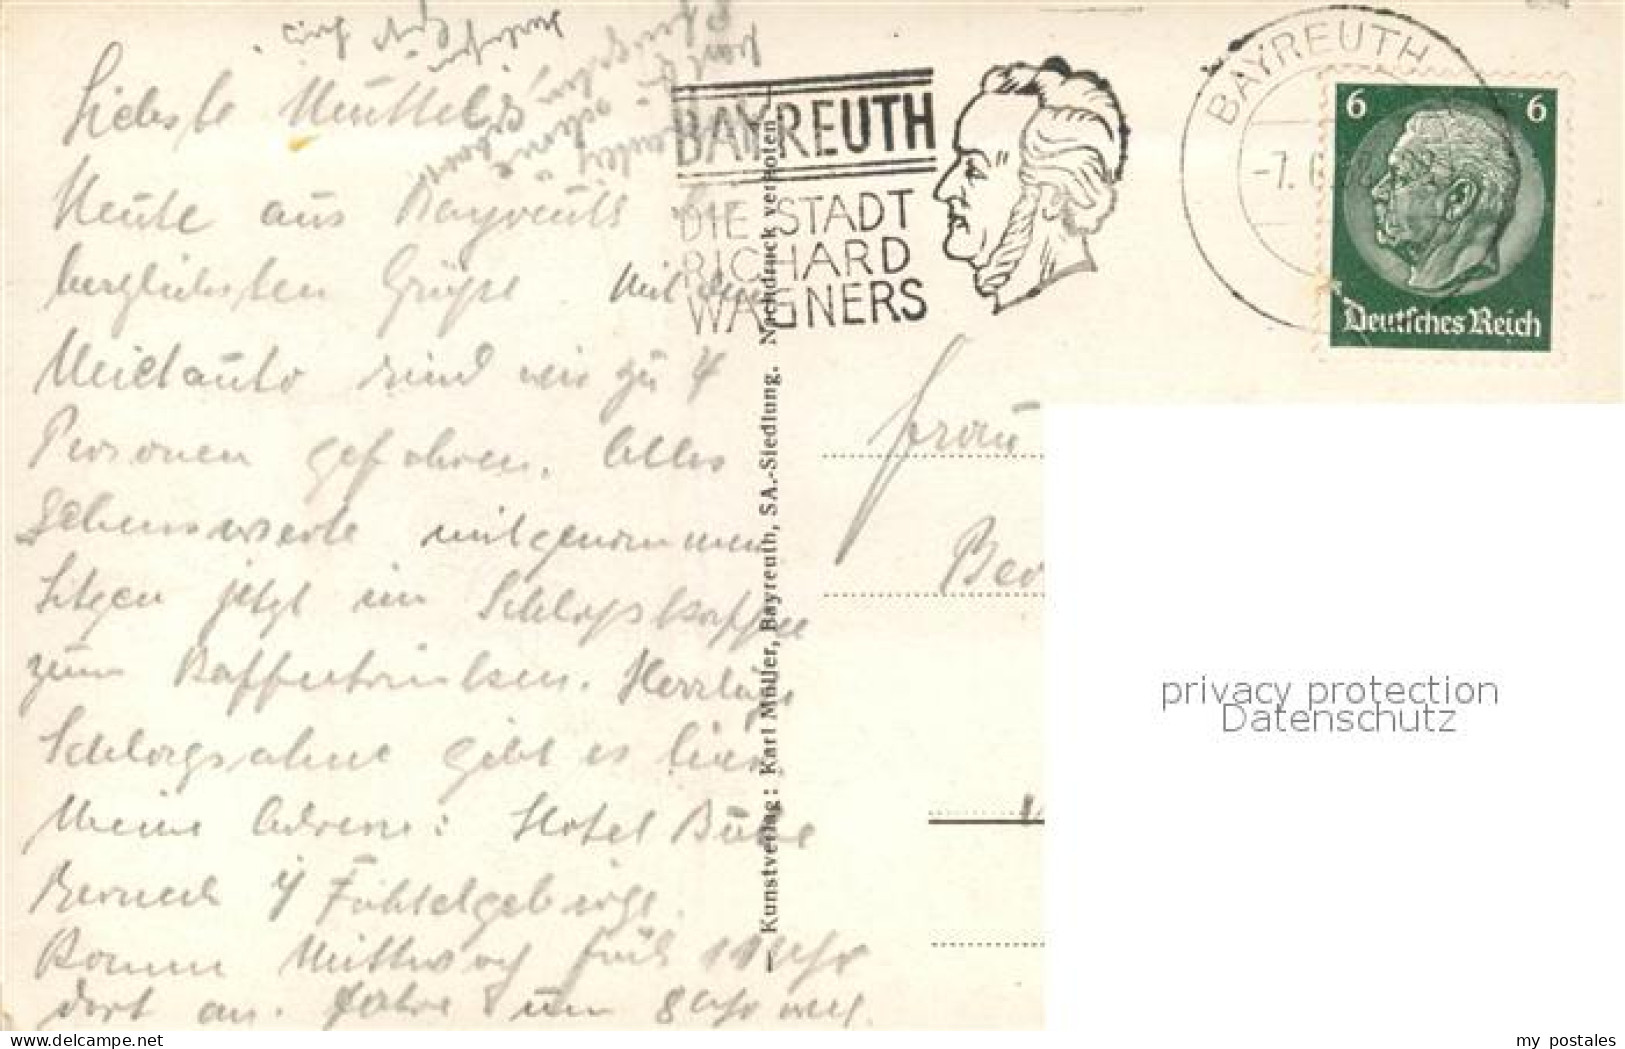 Liebste Mutter
Heute aus Bayreuth
herzlichsten Grüße. Mit dem
Mietauto sind wir zu 4
Personen gefahren. Alles
Sehenswerte mitgenommen
Sitzen jetzt im Schloßkaffee
zum Kaffeetrinken. Herrliche
Schlagsahne gibt es hier.
Meine Adresse: Hotel Bube
Berneck i/ Fichtelgebirge.
Komme Mittwoch früh 11 Uhr
dort an. Fahre um 8 Uhr weg.
Kunstverlag: Karl Müller, Bayreuth, SA.-Siedlung. Nachdruck verboten.
BAYREUTH
DIE STADT
RICHARD
WAGNERS
BAYREUTH
-7. 6.38
6 6
Deutsches Reich
Frau
Ber
privacy protection
Datenschutz
www.ansichtskartenversand.com
my_postales